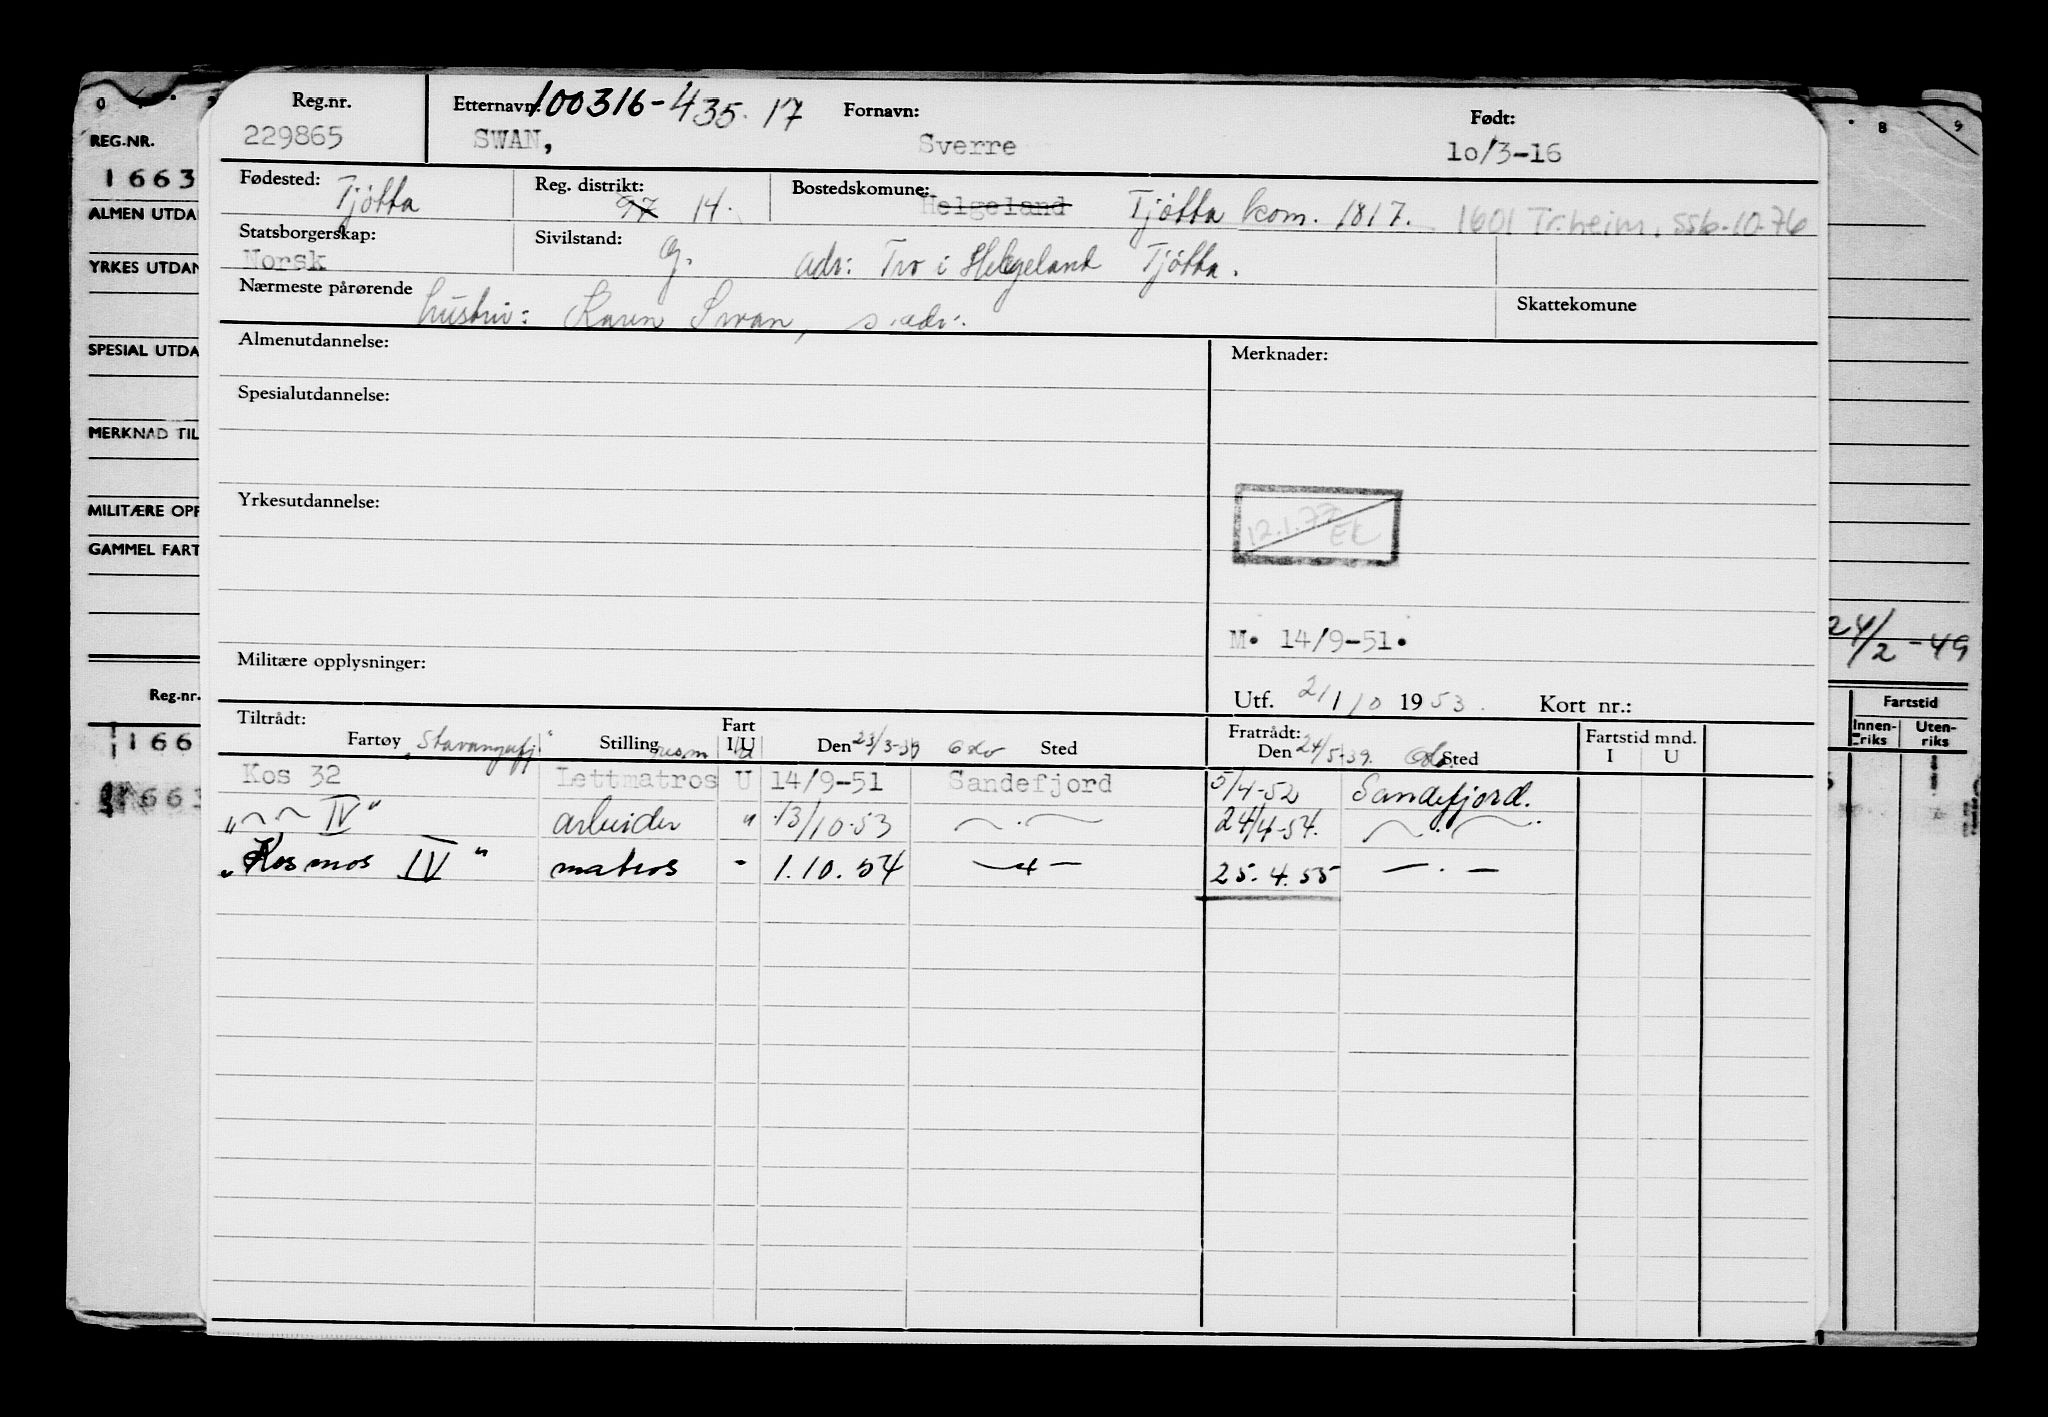 REG.NR.
1663
ALMEN UTDA
YRKES UTDAN
SPESIAL UTDA
MERKNAD TIL
MILITÆRE OPP
GAMMEL FART
Reg.nr.
166
663
Reg.nr. Etternavn: 100316-435.17 Fornavn: Født:
229865 SWAN, Sverre 10/3-16
Fødested: Tjøtta Reg. distrikt: 97 14. Bostedskomune: Helgeland Tjøtta kom. 1817. 1601 Tr.heim, SSB-10.76
Statsborgerskap: Norsk Sivilstand: g. adr: Tro i Helgeland Tjøtta.
Nærmeste pårørende hustru: Karen Swan, s. adr. Skattekomune
Almenutdannelse: Merknader:
Spesialutdannelse:
Yrkesutdannelse:
12.1.77 EK
M. 14/9-51.
Militære opplysninger:
Utf. 21/10 1953. Kort nr.:
Tiltrådt: Fratrådt:
Fartøy "Stavangerfj." Stilling Fart I/U Den 23/3-39 Oslo Sted Den 24/5-39. Sted Fartstid mnd. I U
Kos 32 Lettmatros U 14/9-51 Sandefjord 5/4-52 Sandefjord.
„ ~ ~ IV" arbeider " 13/10-53 ~ . ~ 24/4-54. ~ . ~
„Kosmos IV" matros - 1.10.54 — 25.4.55 — . —
8 9
24/2-49
Fartstid
Innen-riks Uten-riks